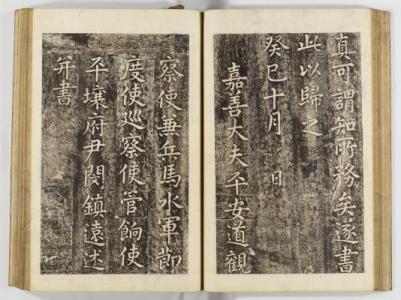 真可謂知所務矣遂書
此以歸之
癸巳十月 日
嘉善大夫平安道觀
察使兼兵馬水軍節
度使廵察使管餉使
平壤府尹閔鎮遠述
并書